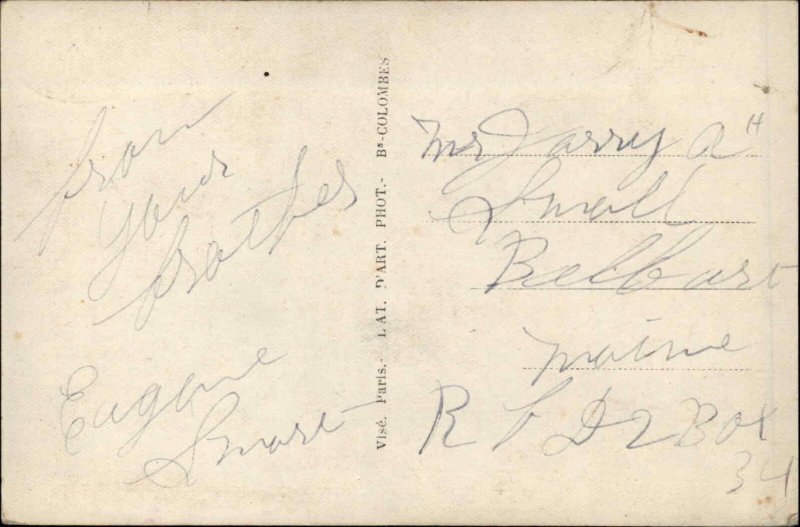 from
your
brother
Eugene
Smart
Visé. Paris.- LAT. D'ART. PHOT.- Bs-COLOMBES
Mr Harry A
Small
Bellfast
Maine
R F D 2 Box
34